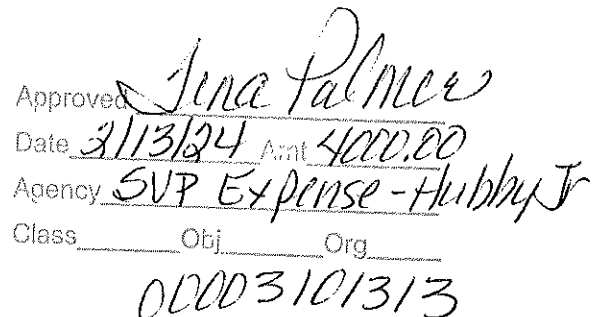 Approved Tina Palmer
Date 2/13/24 Amt 4000.00
Agency SVP Expense-Hubby Jr
Class Obj Org
00003101313